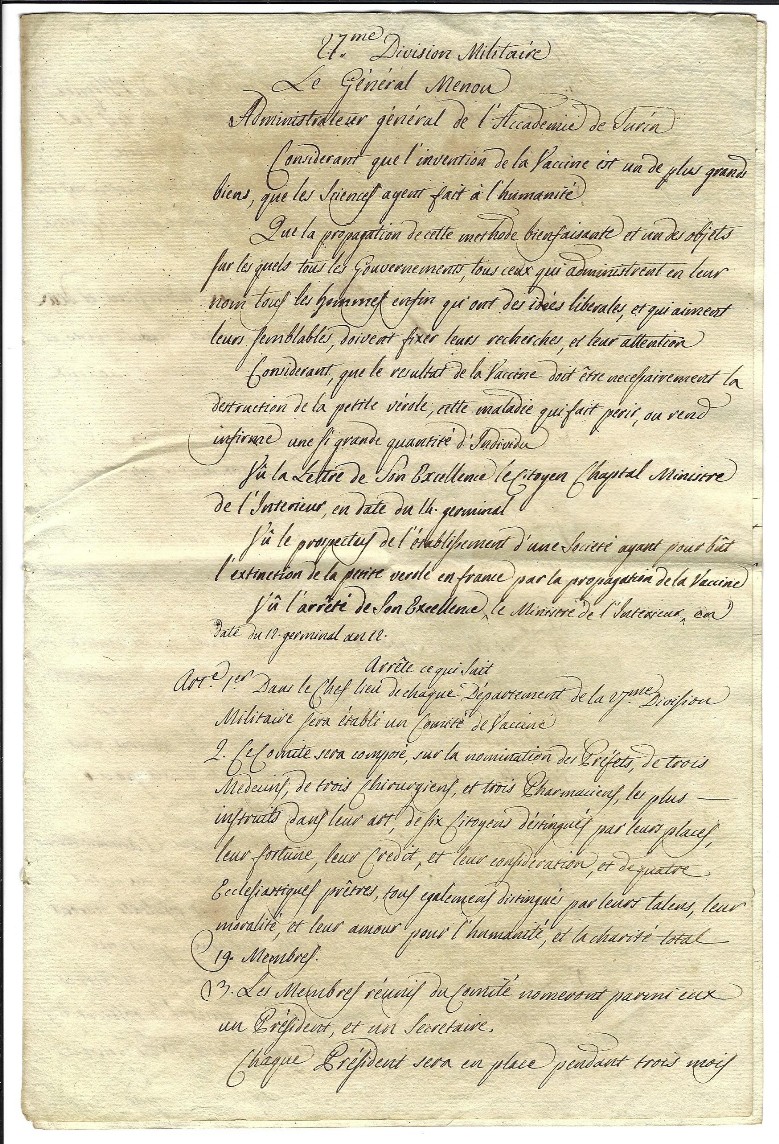 27.me Division Militaire
Le Général Menou
Administrateur général de l'Accademie de Turin
Considerant que l'invention de la Vaccine est un de plus grands
biens, que les Sciences ayent fait à l'humanité
Que la propagation de cette methode bienfaisante et un des objets
sur les quels tous les Gouvernements, tous ceux qui administrent en leur
nom tous les hommes enfin qu'ont des idées liberales, et qui aiment
leurs semblables, doivent fixer leurs recherches, et leur attention
Considerant, que le resultat de la Vaccine doit être necessairement la
destruction de la petite vérole, cette maladie qui fait perir, ou rend
infirme une si grande quantité d'Individu
Vû la Lettre de Son Excellence le Citoyen Chaptal Ministre
de l'Interieur, en date du 14. germinal
Vû le prospectus de l'établissement d'une Société ayant pour bût
l'extinction de la petite verole en france par la propagation de la Vaccine
Vû l'arrêté de Son Excellence, le Ministre de l'Interieur, en
date du 12. germinal an 12.
Arrête ce qui suit
Art.e 1.er Dans le Chef lieu de chaque Département de la 27.me Division
Militaire sera établi un Comité de Vaccine
2. Ce Comité sera composé, sur la nomination des Préfets, de trois
Medecins, de trois Chirurgiens, et trois Pharmaciens, les plus —
instruits dans leur art, de six Citoyens distingués par leurs places,
leur fortune, leur Credit, et leur consideration, et de quatre
Ecclesiastiques prêtres, tous egalement distingués par leurs talens, leur
moralité, et leur amour pour l'humanité, et la charité total
19. Membres.
3. Les Membres réunis du Comité nomeront parmi eux
un Président, et un Secretaire.
Chaque Président sera en place pendant trois mois